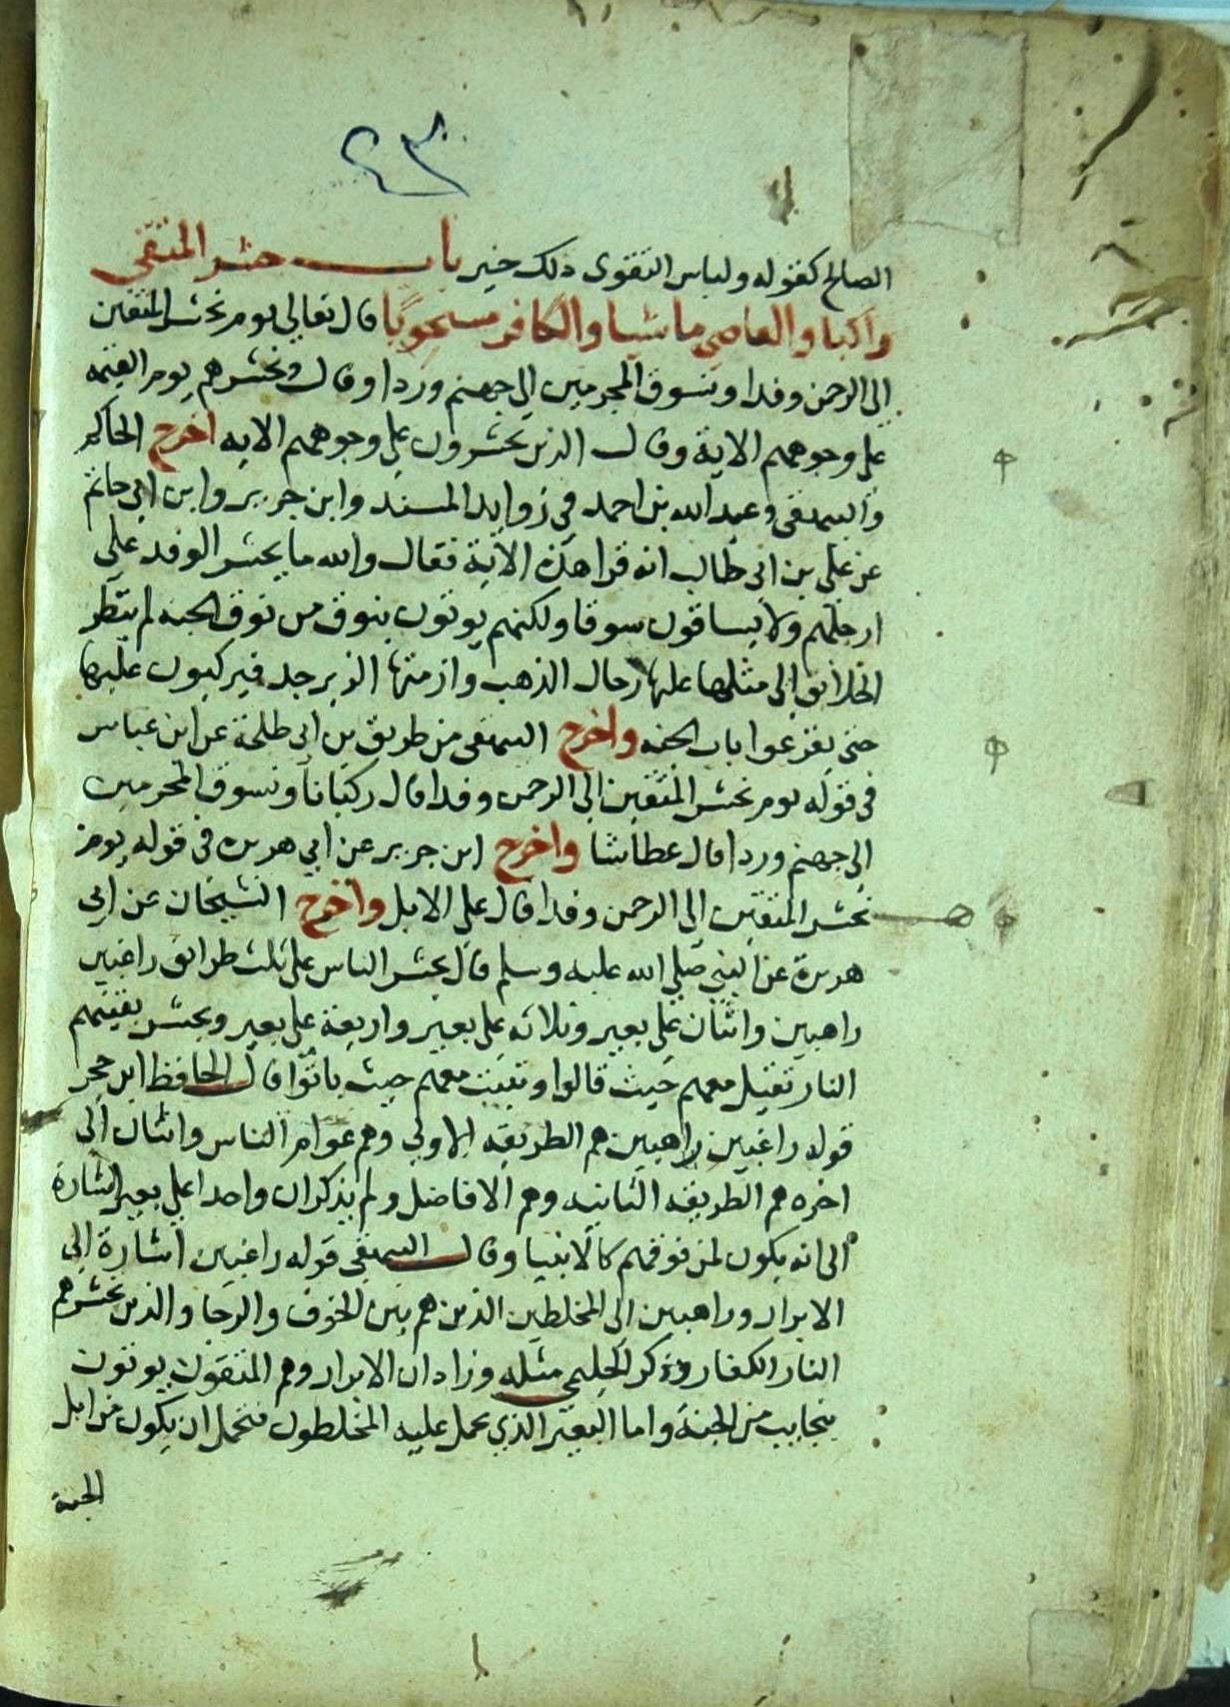 ٢٣
الصالح كقوله ولباس التقوى ذلك خير باب حشر المتقي
راكبا والعاصي ماشيا والكافر مسحوبا قال تعالى يوم نحشر المتقين
الى الرحمن وفدا ونسوق المجرمين الى جهنم وردا وقال ونحشرهم يوم القيمه
على وجوههم الاية وقال الذين يحشرون على وجوههم الايه اخرج الحاكم
والبيهقي وعبد الله بن احمد في زوايد المسند وابن جرير وابن ابي حاتم
عن علي بن ابي طالب انه قرا هذه الاية فقال والله ما يحشر الوفد على
ارجلهم ولا يساقون سوقا ولكنهم يوتون بنوق من نوق الجنه لم ينظر
الخلائق الى مثلها عليها رحال الذهب وازمتها الزبرجد فيركبون عليها
حتى يقرعوا باب الجنه واخرج البيهقي من طريق بن ابي طلحة عن ابن عباس
في قوله يوم نحشر المتقين الى الرحمن وفدا قال ركبانا ونسوق المجرمين
الى جهنم وردا قال عطاشا واخرج ابن جرير عن ابي هريرة في قوله يوم
نحشر المتقين الى الرحمن وفدا قال على الابل واخرج الشيخان عن ابي
هريرة عن النبي صلى الله عليه وسلم قال يحشر الناس على ثلث طرائق راغبين
راهبين واثنان على بعير وثلاثه على بعير واربعة على بعير ويحشر بقيتهم
النار تقيل معهم حيث قالوا وتبيت معهم حيث باتوا قال الحافظ ابن حجر
قوله راغبين راهبين هم الطريقه الاولى وهم عوام الناس واثنان الى
اخره هم الطريقه الثانيه وهم الافاضل ولم يذكران واحدا على بعير اشارة
الى انه يكون لمن فوقهم كالانبيا وقال البيهقي قوله راغبين اشارة الى
الابرار وراهبين الى المخلطين الذين هم بين الخوف والرجا والذين تحشرهم
النار الكفار وذكر الحليمي مثله وزاد ان الابرار وهم المتقون يوتون
بنجايب من الجنة واما البعير الذي يحمل عليه المخلطون فيحتمل ان يكون من ابل
الجنة